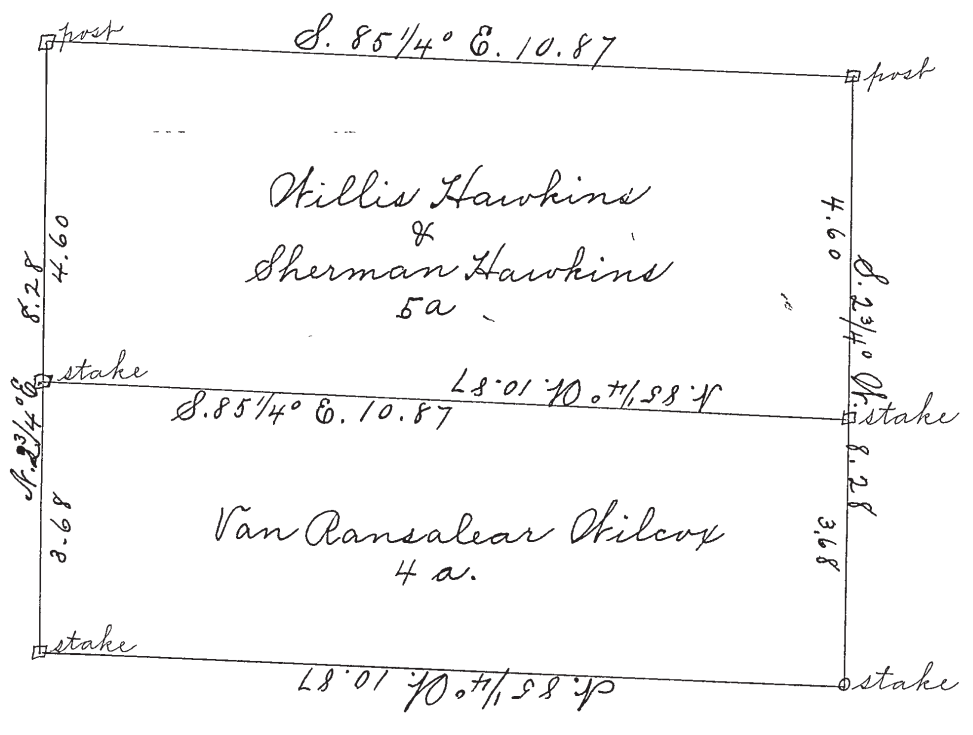 post
S. 85 1/4° E. 10.87
post
Willis Hawkins
&
Sherman Hawkins
5a
4.60
8.28
N. 2 3/4° E
4.60
S. 2 3/4° W.
8.28
stake
N. 85 1/4° W. 10.87
S. 85 1/4° E. 10.87
stake
Van Ransalear Wilcox
4 a.
3.68
3.68
stake
N. 85 1/4° W. 10.87
stake